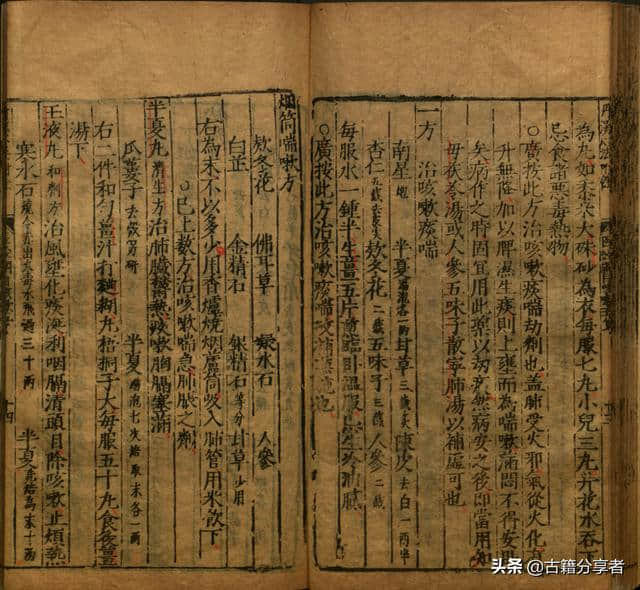 為丸如朱砂為衣每服七丸小兒三丸井花水吞下
忌食諸惡毒熱物
○廣按此方治咳嗽痰喘劫劑也蓋肺受火邪氣從火化有
升無降加以脾濕生痰則上壅而為喘嗽滿悶不得安卧
矣病作之時固宜用此藥以劫然病安之後即當用知
母茯苓湯或人參五味子散寧肺湯以補虛可也
一方 治咳嗽痰喘
南星 半夏 甘草 陳皮去白一兩半
杏仁 欵冬花二錢 五味子三錢 人參二錢
每服水一鍾半生薑五片
○廣按此方治咳嗽痰喘也
烟筒喘嗽方
欵冬花 佛耳草 人參
白芷 金精石 銀精石等分 甘草少用
右為末不以多少用香爐燒烟薰筒吸入肺管用米飲下
○已上數方治咳嗽喘急肺脹之劑
半夏丸濟生方治肺臟熱痰嗽胸膈塞滿
瓜蔞子去殼另研 半夏湯泡七次焙取末各一兩
右二件和勻薑汁打麵糊丸梧桐子大每服五十丸食後薑
湯下
玉液丸和劑方治風壅化痰涎利咽膈清頭目除咳嗽止煩熱
寒水石 水飛過三十兩 半夏
頭条 @古籍分享者